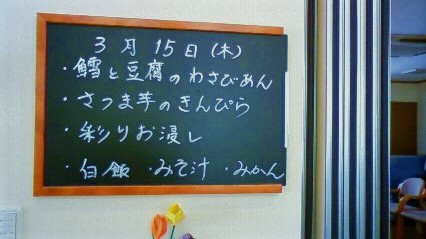 3月15日(木)
・鱈と豆腐のわさびあん
・さつま芋のきんぴら
・彩りお浸し
・白飯 ・みそ汁 ・みかん